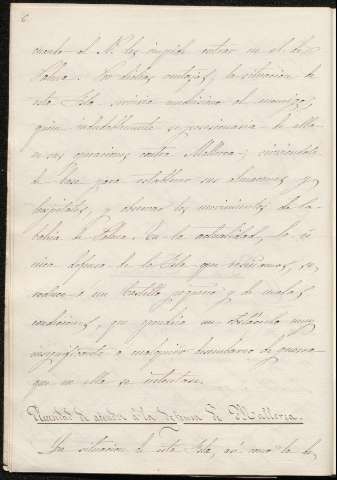 6
cuando el N. les impide entrar en el de
Palma. Por dichas ventajas, la situacion de
esta Isla serviria muchisimo al enemigo,
quien indudablemente se posesionaria de ella
en sus operaciones contra Mallorca; sirviendole
de base para establecer sus almacenes y
hospitales, y observar los movimientos de la
bahia de Palma. En la actualidad, la ú-
nica defensa de la Isla que reseñamos, se
reduce á un Castillo pequeño y de malas
condiciones, que pondria un obstáculo muy
insignificante á cualquier desembarco de guerra
que en ella se intentase.
Necesidad de atender á la defensa de Mallorca.
La situacion de esta Isla, así como la de